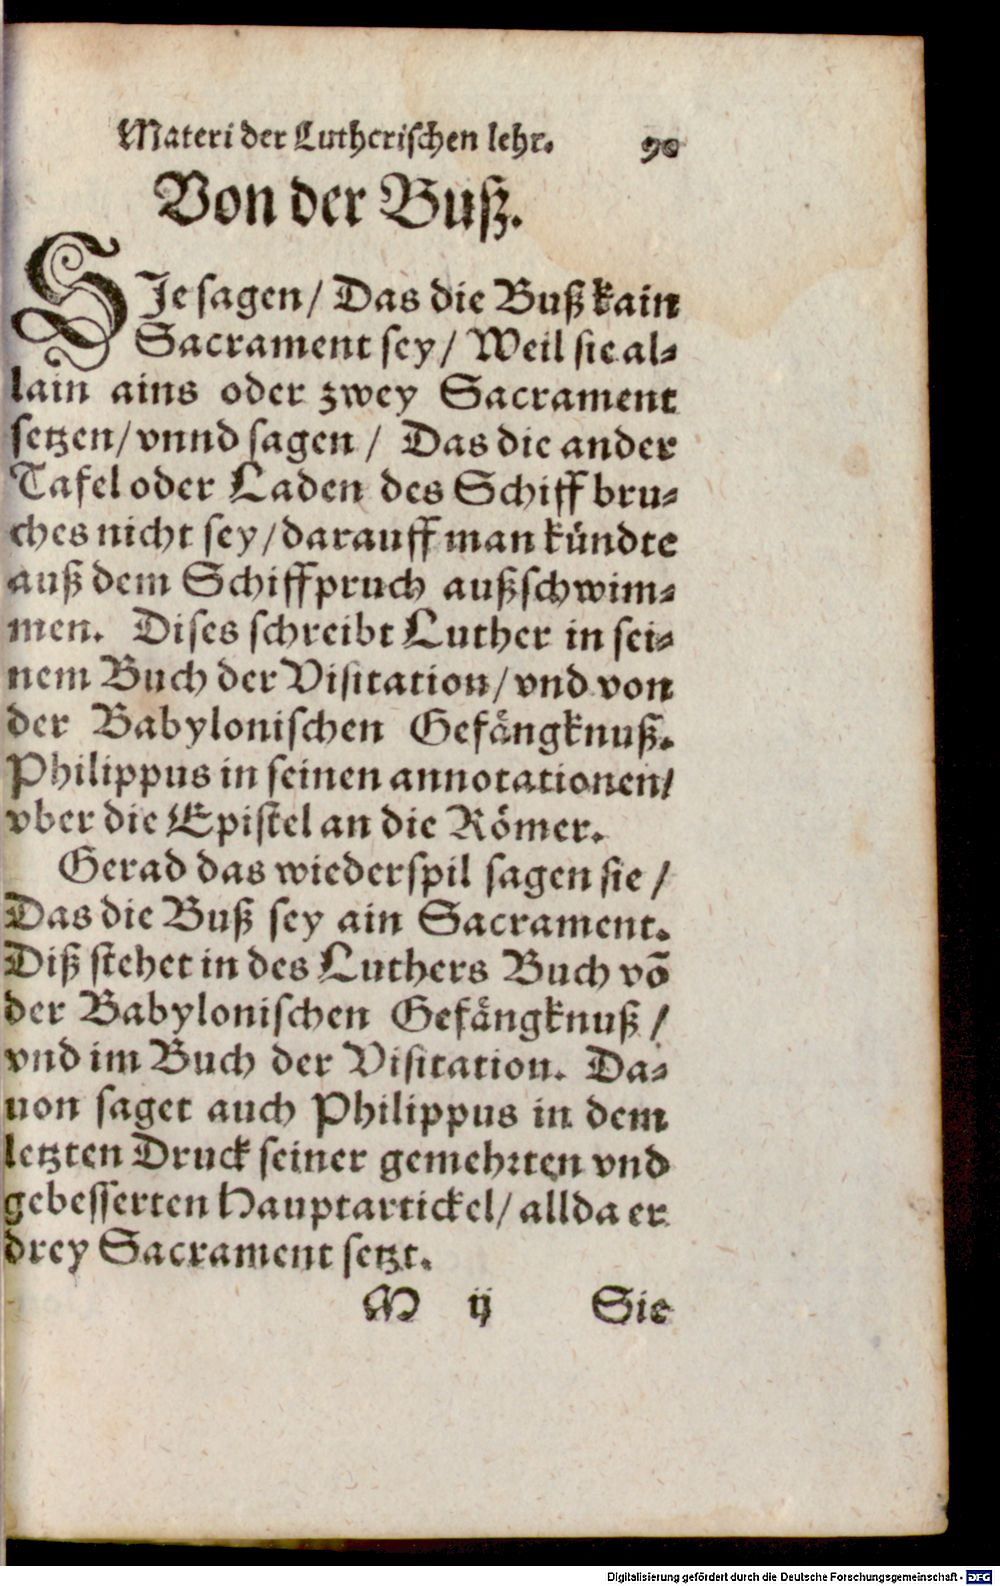 Materi der Lutherischen lehr. 90
Von der Buß.
SJe sagen / Das die Buß kain
Sacrament sey / Weil sie al-
lain ains oder zwey Sacrament
setzen / vnnd sagen / Das die ander
Tafel oder Laden des Schiffbru-
ches nicht sey / darauff man kündte
auß dem Schiffpruch außschwim-
men. Dises schreibt Luther in sei-
nem Buch der Visitation / vnd von
der Babylonischen Gefängknuß.
Philippus in seinen annotationen /
vber die Epistel an die Römer.
Gerad das wiederspil sagen sie /
Das die Buß sey ain Sacrament.
Diß stehet in des Luthers Buch võ
der Babylonischen Gefängknuß /
vnd im Buch der Visitation. Da-
uon saget auch Philippus in dem
letzten Druck seiner gemehrten vnd
gebesserten Hauptartickel / allda er
drey Sacrament setzt.
M ij Sie
Digitalisierung gefördert durch die Deutsche Forschungsgemeinschaft - DFG